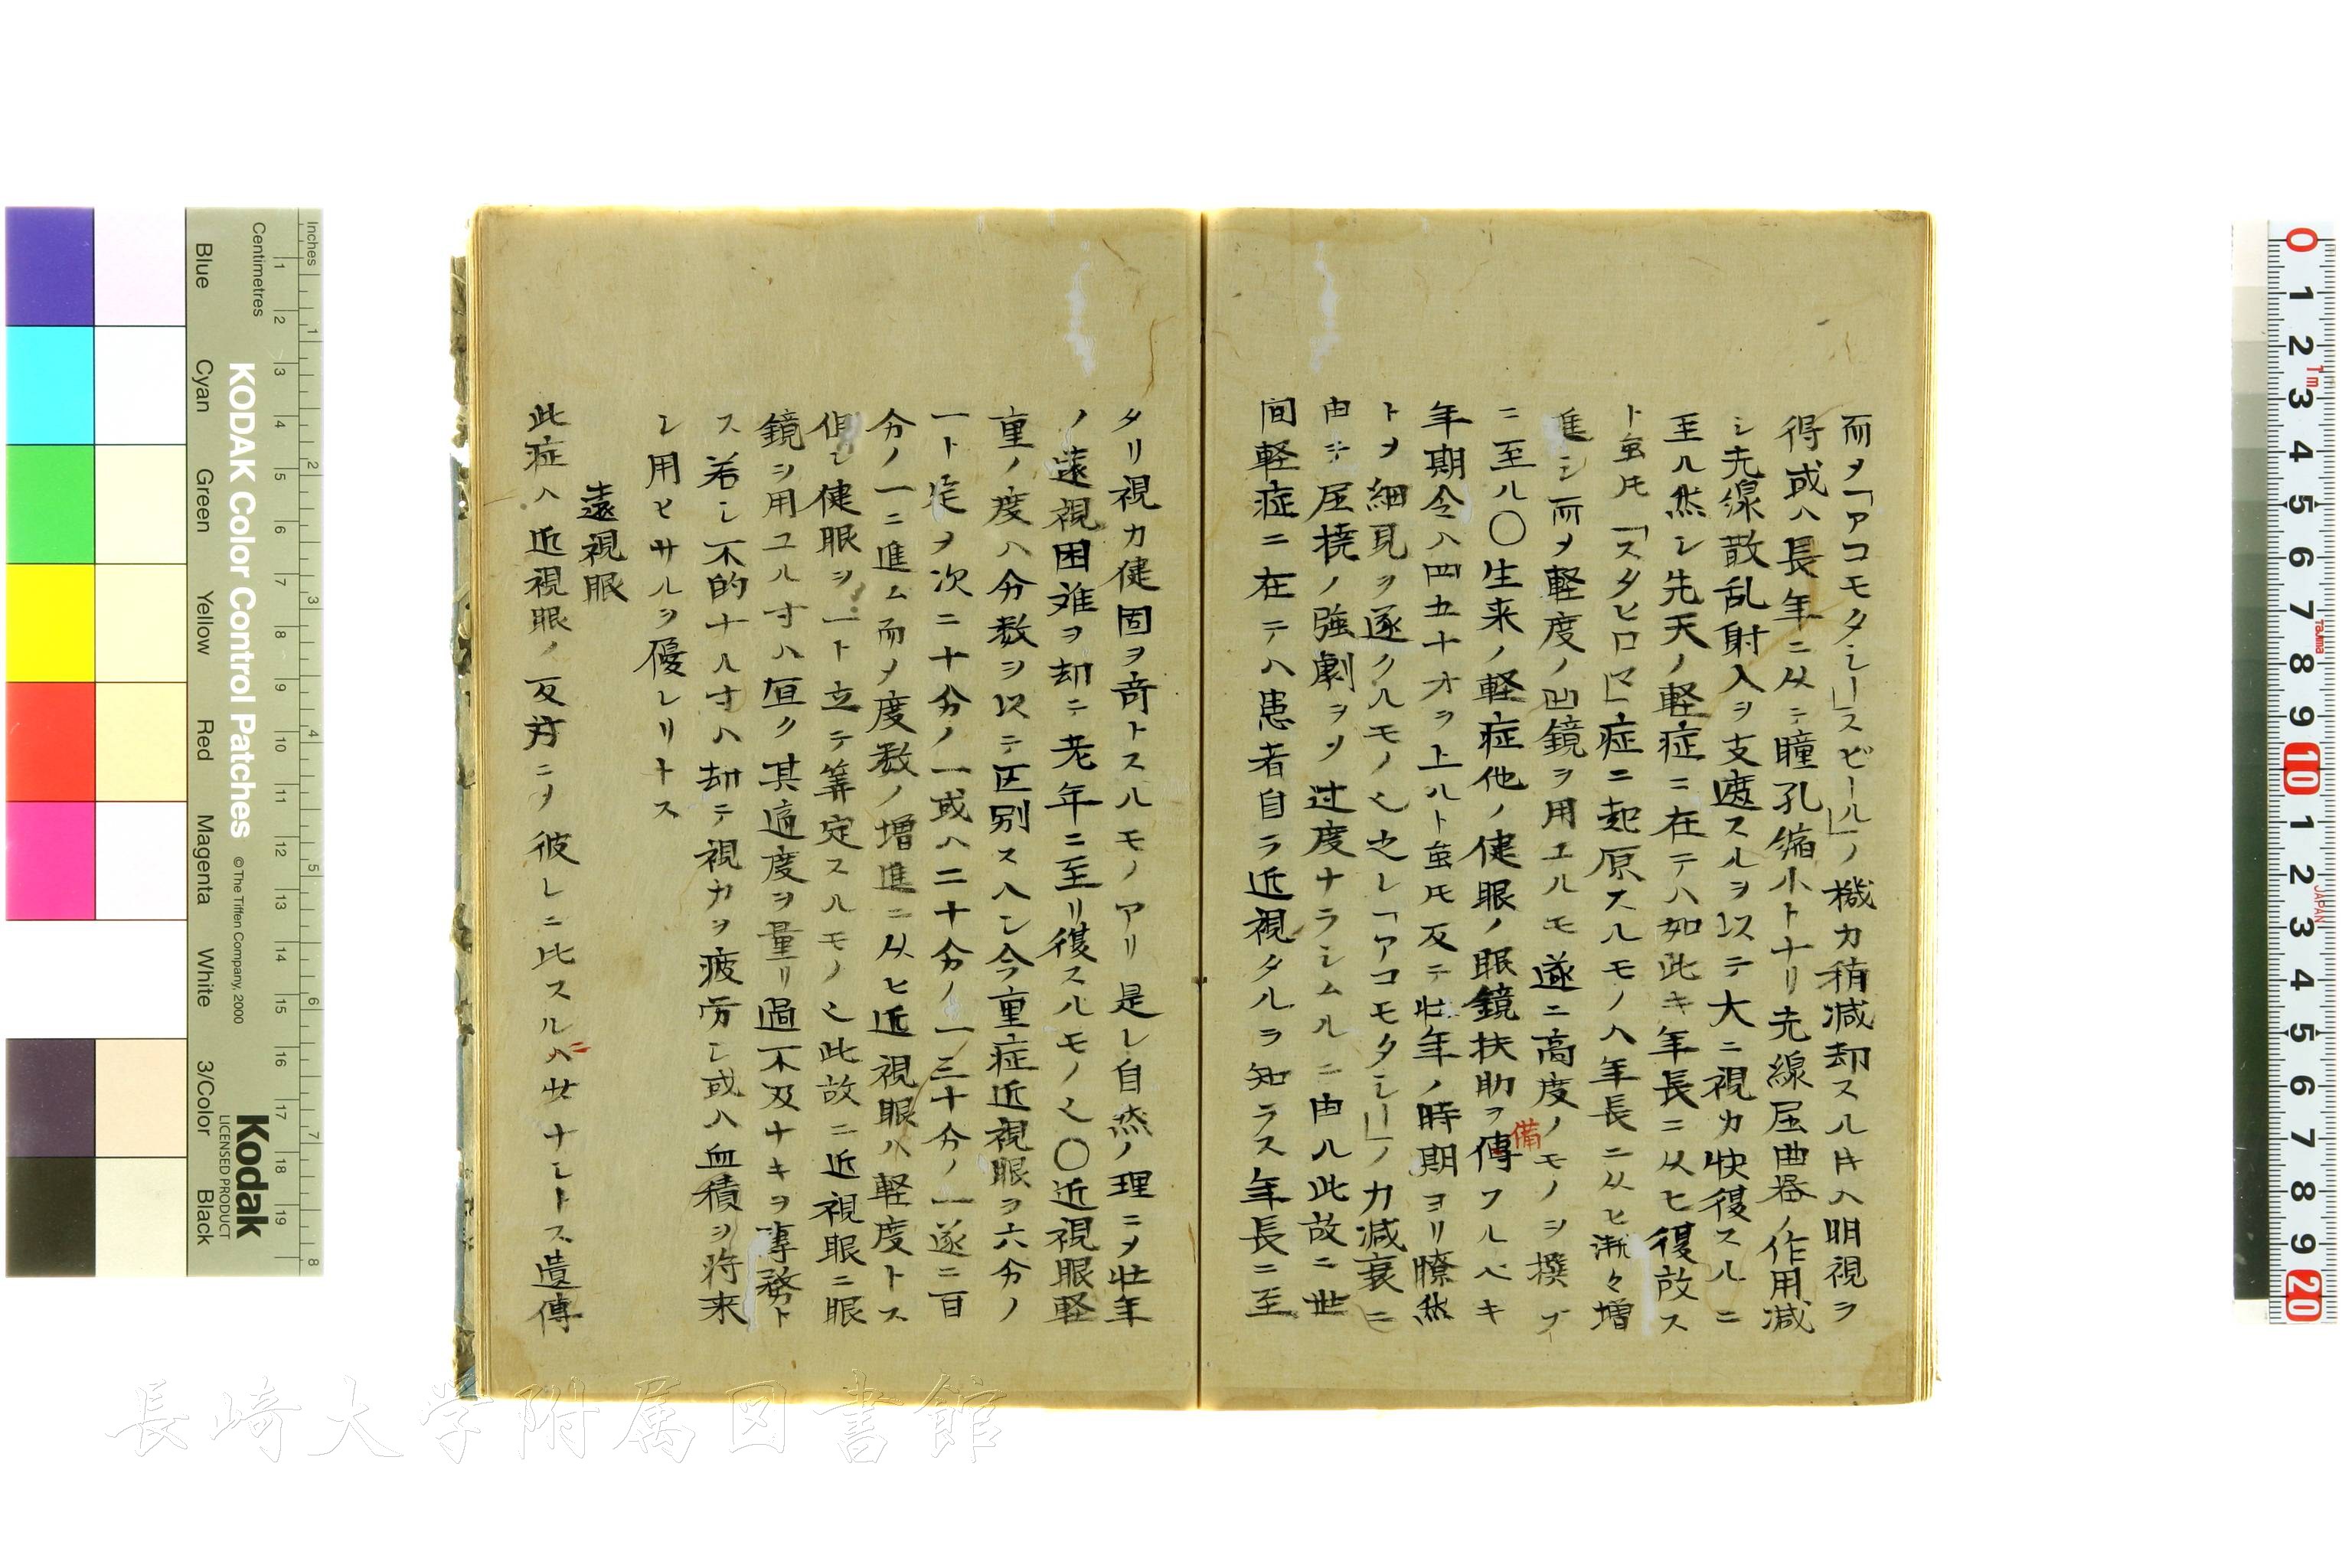 而ヲ「アコモタシー」スビール」ノ機力稍減却スル片ハ明視ヲ
得或ハ長年ニ从テ瞳孔縮小トナリ光線屈曲器ノ作用減
シ光線散乱射入ヲ支遮スルヲ以テ大ニ視力快復スルニ
至ル然レ先天ノ軽症ニ在テハ如此キ年長ニ从ヒ復故ス
ト虽𪜈「スタヒロマ」症ニ起原スルモノハ年長ニ从ヒ漸々増
進シ而メ軽度ノ凹鏡ヲ用エルモ遂ニ高度ノモノヲ撰ブ
ニ至ル〇生来ノ軽症他ノ健眼ノ眼鏡扶助ヲ傳フルベキ
備
年期令ハ四五十才ヲ上ルト虽𪜈反テ壮年ノ時期ヨリ瞭然
トヲ細見ヲ遂クルモノ也之レ「アコモタシー」ノ力減衰ニ
由テ屈撓ノ強劇ヲメ过度ナラシムルニ由ル此故ニ世
间軽症ニ在テハ患者自ラ近視タルヲ知ラス年長ニ至
タリ視力健固ヲ奇トスルモノアリ是レ自然ノ理ニメ壮年
ノ遠視困难ヲ却テ老年ニ至リ復スルモノ也〇近視眼軽
重ノ度ハ分数ヲ以テ区別スヘシ今重症近視眼ヲ六分ノ
一ト定ヲ次ニ十分ノ一或ハ二十分ノ一三十分ノ一遂ニ百
分ノ一ニ進ム而メ度数ノ増進ニ从ヒ近視眼ハ軽度トス
但シ健眼ヲ一ト立テ算定スルモノ也此故ニ近視眼ニ眼
鏡ヲ用ユル寸ハ宜ク其適度ヲ量リ過不及ナキヲ専務ト
ス若シ不的ナル寸ハ却テ視力ヲ疲労シ或ハ血積ヲ将来
シ用ヒサルヲ優レリトス
遠視眼
此症ハ近視眼ノ反対ニメ彼レニ比スルハ少ナシトス遺傳
Inches
Centimetres
KODAK Color Control Patches
© The Tiffen Company, 2000
Kodak
LICENSED PRODUCT
Blue
Cyan
Green
Yellow
Red
Magenta
White
3/Color
Black
1 2 3 4 5 6 7 8 9 10 11 12 13 14 15 16 17 18 19
1 2 3 4 5 6 7 8
0 1 2 3 4 5 6 7 8 9 10 1 2 3 4 5 6 7 8 9 20
1m
Tajima
JAPAN
長崎大学附属図書館